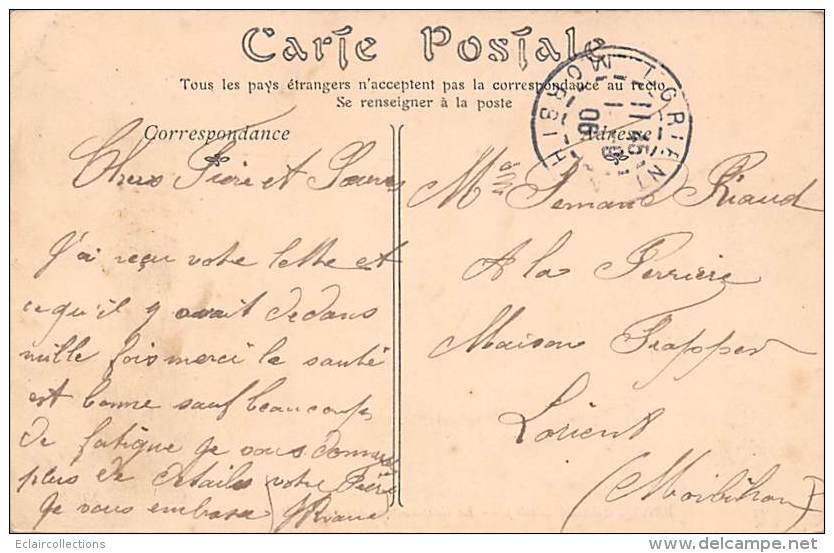 Carte Postale
Tous les pays étrangers n'acceptent pas la correspondance au recto
Se renseigner à la poste
Correspondance
Adresse
LORIENT
MORBIHAN
Chers Frère et Sœurs
J'ai reçu votre lettre et
ce qu'il y avait dedans
mille fois merci la santé
est bonne sauf beaucoup
de fatigue je vous donnerai
plus de détails votre Frère
Je vous embrasse Riaud
Mr Fernand Riaud
A la Perrière
Maison Trapper
Lorient
(Morbihan)
Eclaircollections
www.delcampe.net